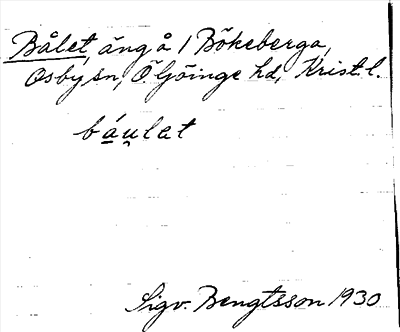 Bålet, äng å 1 Bökeberga,
Osby sn, Ö. Göinge hd, Krist. l.
báu̯lat
Sigv. Bengtsson 1930